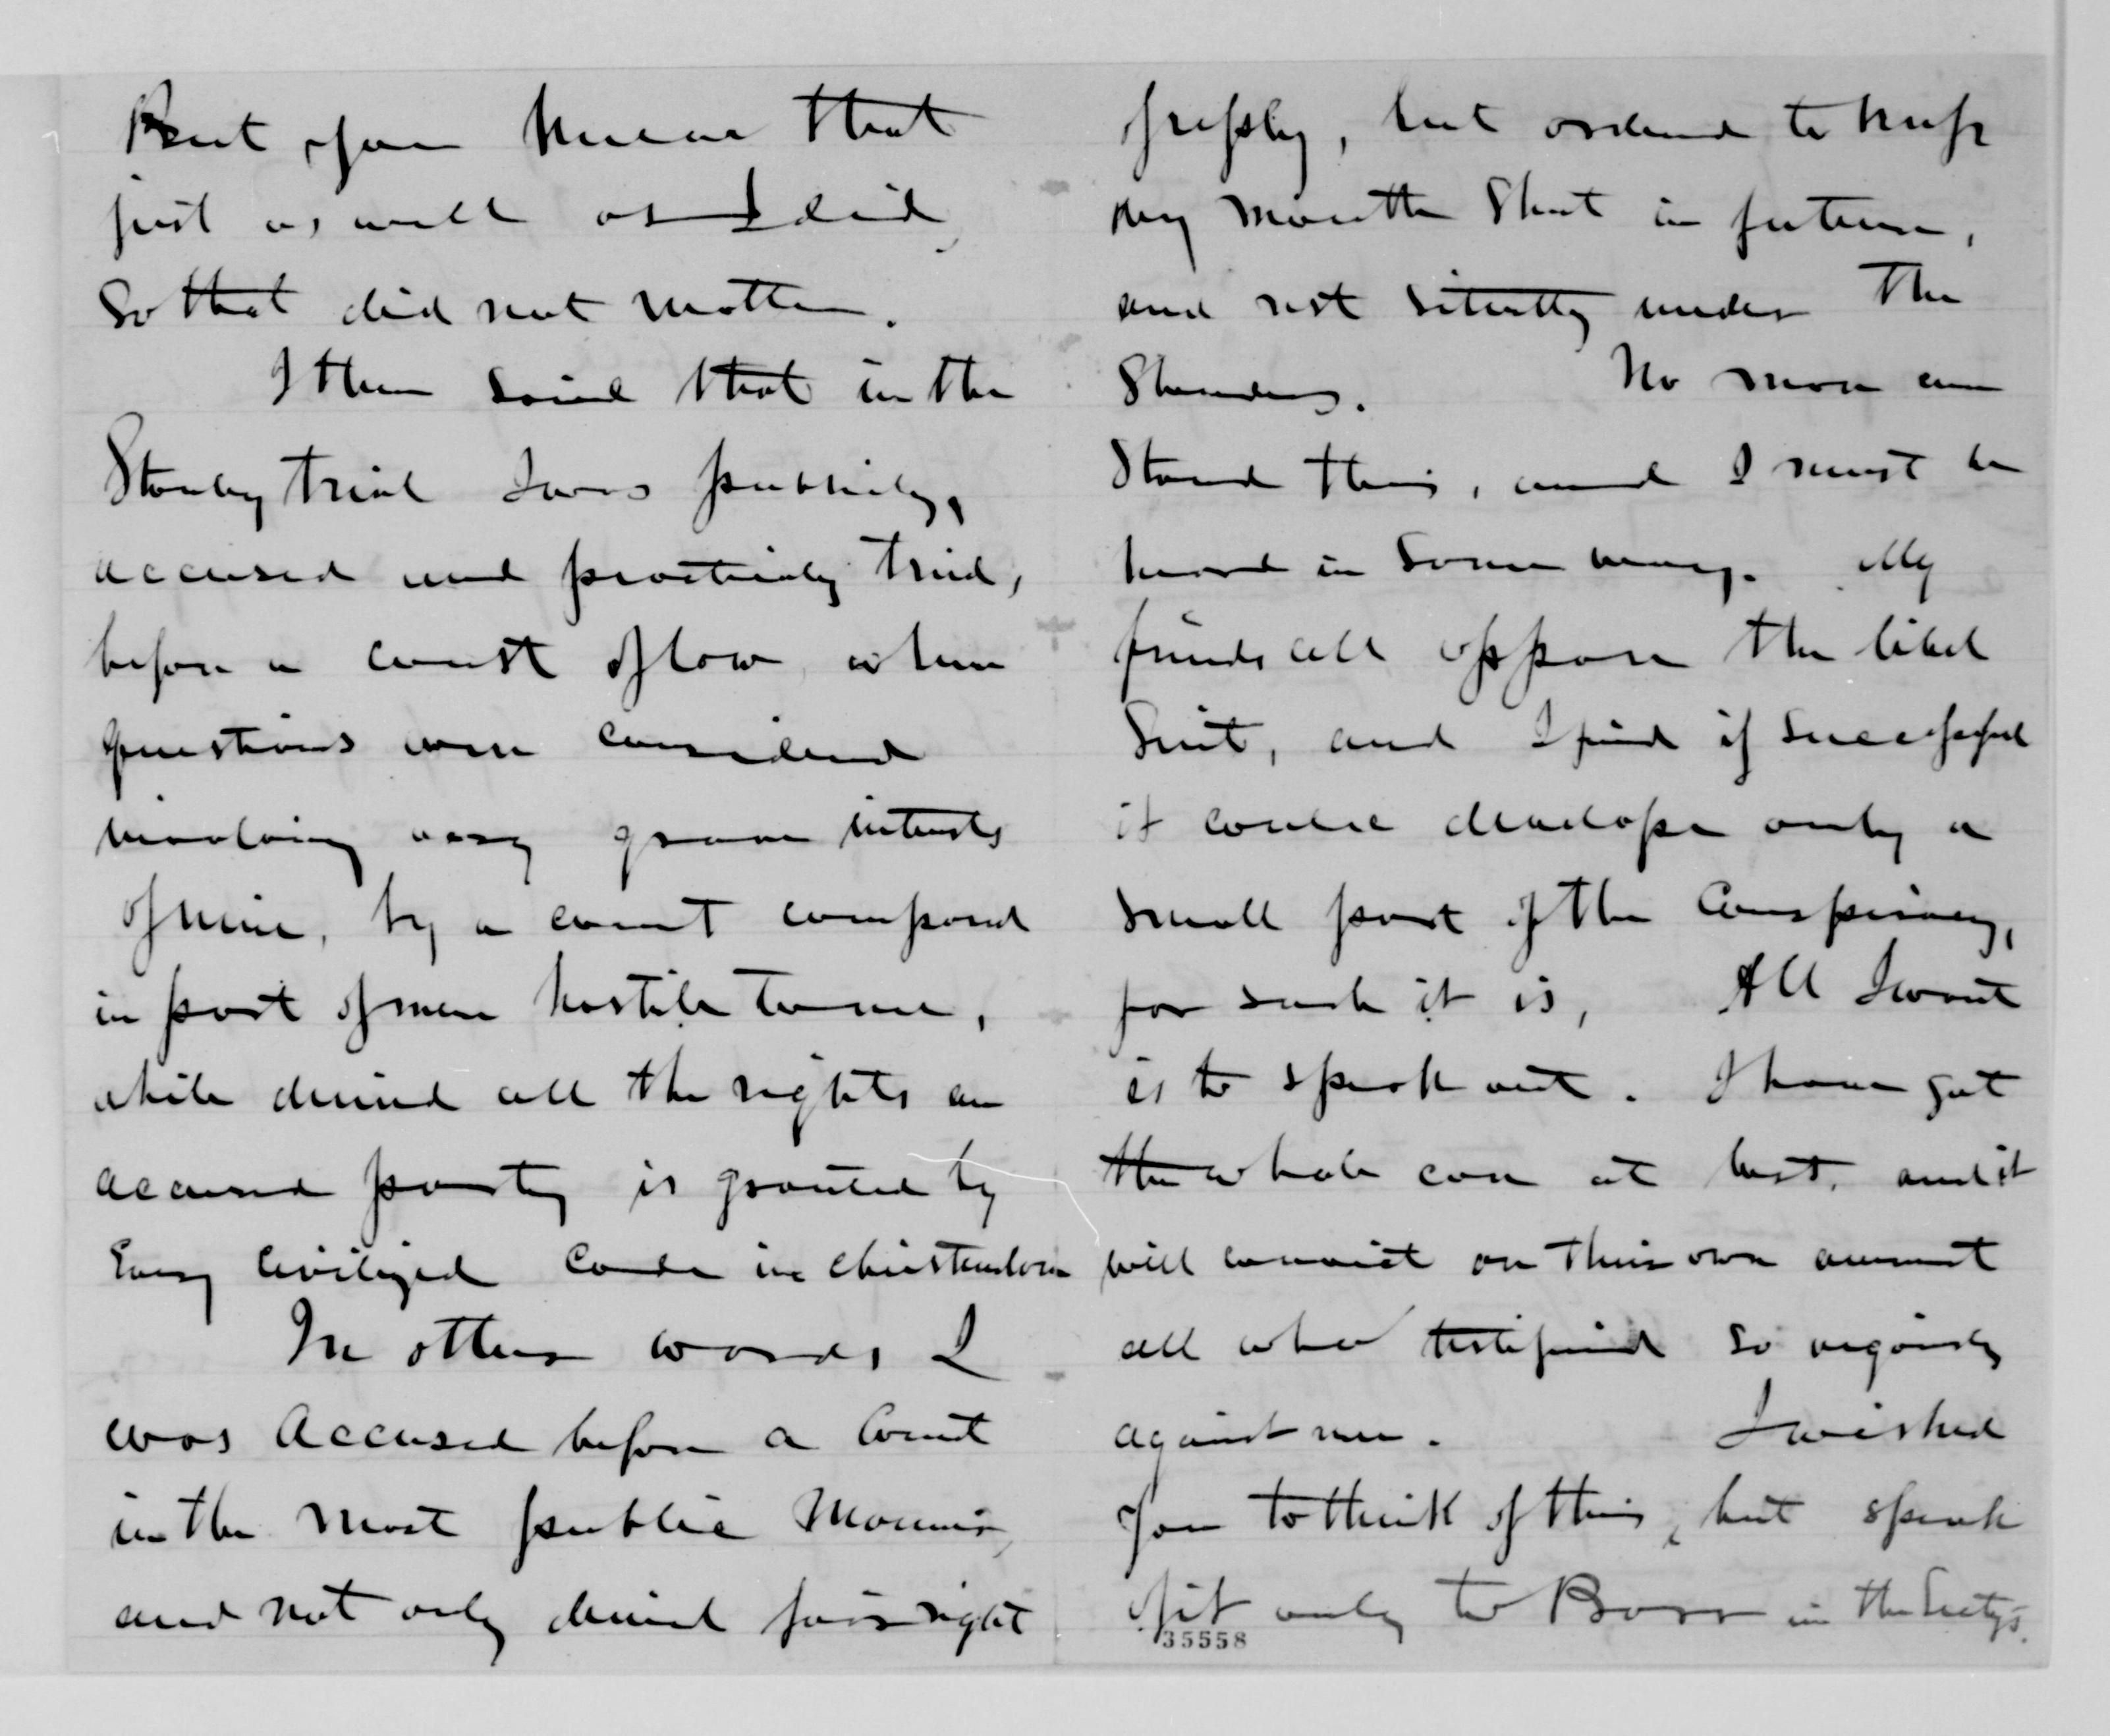 But you knew that
just as well as I did,
so that did not matter.
I then said that in the
Stanley trial I was publicly,
accused and practicaly tried,
before a court of law, where
questions were considered
involving very grave interests
of mine, by a court composed
in part of men hostile to me,
while denied all the rights an
accused party is granted by
every civilized code in christendom
In other words I
was accused before a court
in the most public manner,
and not only denied fair right
of reply, but ordered to keep
my mouth shut in future,
and rest silently under the
slanders. No man can
stand this, and I must be
heard in some way. My
friends all oppose the libel
suit, and I find if successful
it could develope only a
small part of the conspiracy,
for such it is, All I want
is to speak out. I have got
the whole case at last, and it
will convict on their own
all who testified so vigorously
against me. I wished
you to think of this, but speak
of it only to in the Secty's.
35558